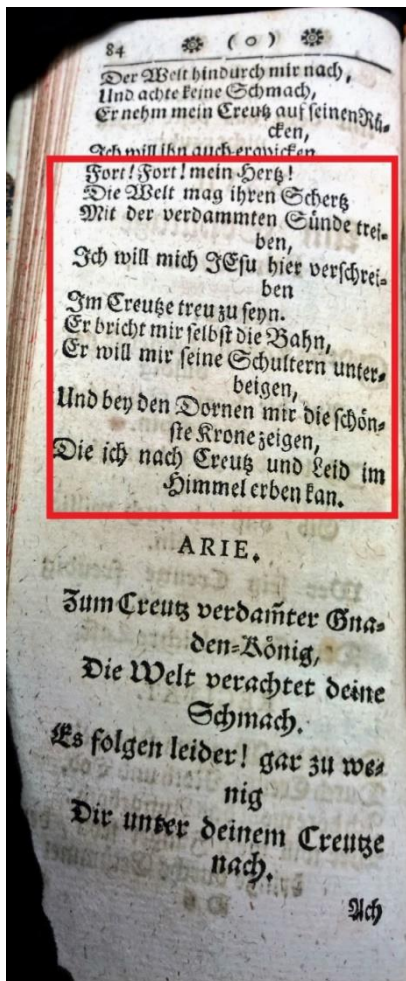 84 ❋ ( o ) ❋
Der Welt hindurch mir nach,
Und achte keine Schmach,
Er nehm mein Creutz auf seinen Rü-
cken,
Ich will ihn auch erqvicken
Fort! Fort! mein Hertz!
Die Welt mag ihren Schertz
Mit der verdammten Sünde trei-
ben,
Ich will mich JEsu hier verschrei-
ben
Im Creutze treu zu seyn.
Er bricht mir selbst die Bahn,
Er will mir seine Schultern unter-
beigen,
Und bey den Dornen mir die schön-
ste Krone zeigen,
Die ich nach Creutz und Leid im
Himmel erben kan.
ARIE.
Zum Creutz verdam̃ter Gna-
den-König,
Die Welt verachtet deine
Schmach.
Es folgen leider! gar zu we-
nig
Dir unter deinem Creutze
nach.
Ach